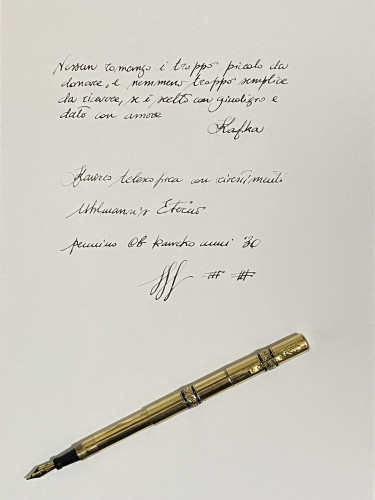 Nessun romanzo è troppo piccolo da
donare, e nemmeno troppo semplice
da ricevere, se è scelto con giudizio e
dato con amore
Kafka
Kaweco telescopica con rivestimento
Uhlmann's Eterno
pennino OB Kaweco anni '30